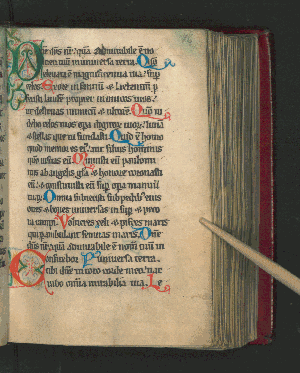 Domine dñs nr̄ · quā admirabile ē no
men tuū in universa terra. Qm̄
elevata ē magnificentia tua · sup
celos. Ex ore infantiū & lactentiū p
fecisti laudē propter inimicos tuos ·
ut destruas inimicū & ultorē. Qm̄ vi
debo celos tuos opa digitorꝝ tuorꝝ · lunā
& stellas que tu fundasti. Quid ē homo
quod memor es ei · aut filius hominis
qm̄ visitas eū. Minuisti eū paulomi
nus ab angelis · gl̄a & honore coronasti
eū · & constituisti eū sup opa manuū
tuaꝝ. Omnia subiecisti sub pedib; eius ·
oves & boves universas insup & peco
ra campi. Volucres celi & pisces maris ·
qui pambulant semitas maris. Dñe
dñs nr̄ · quā admirabile ē nomē tuū in
universa terra.
Confitebor tibi dñe in toto corde meo · nar
rabo om̄ia mirabilia tua. Le